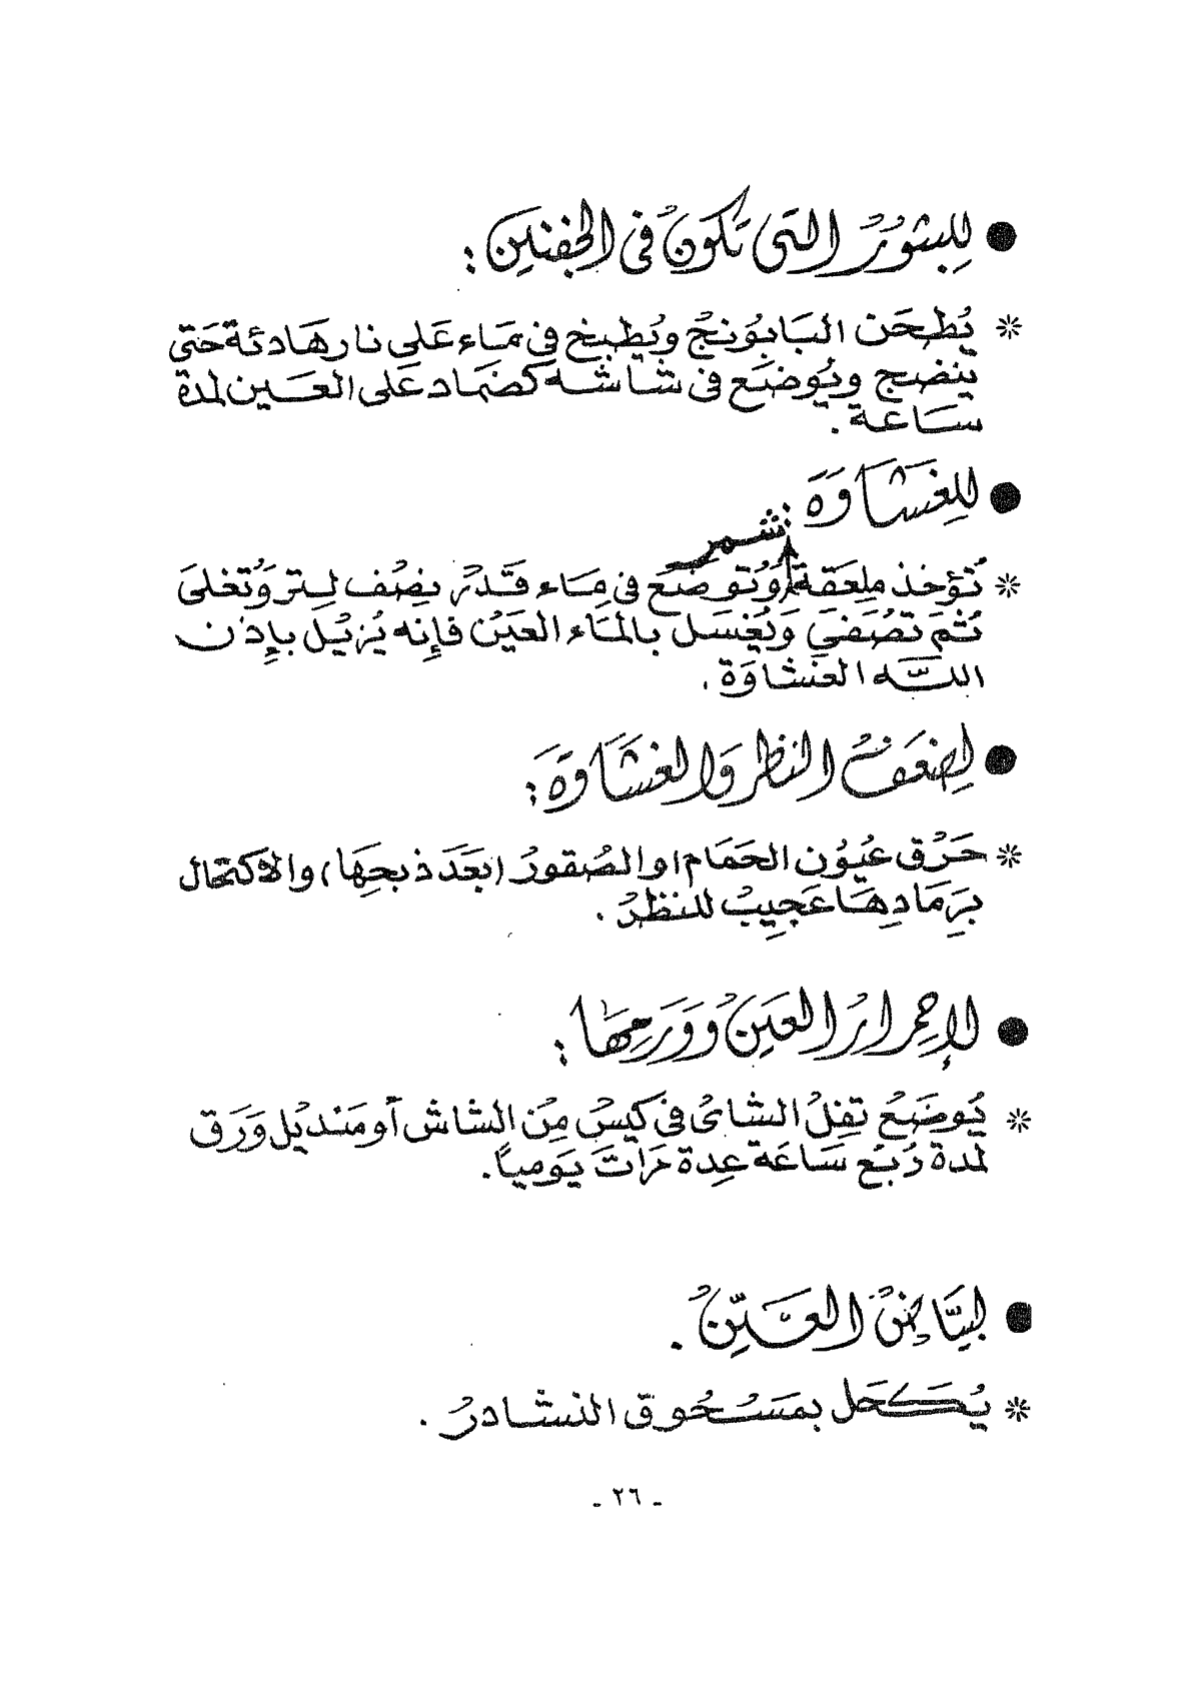 ● للبثور التى تكون فى الجفنين :
* يُطحَن البَابوُنجْ ويُطبخ فى مَاء عَلى نار هَادئة حَتى
ينضج ويُوضَع فى شاشه كضمَاد عَلى العَين لمدة
سَاعة .
● للِغشَاوَة :
شمر
* تؤخذ ملعَقة وَتُوضَع فى مَاء قَدْر نصْف لتر وَتُغلىَ
ثم تصَفىَ وَيُغسَل بالمَاء العَيْن فإِنه يُزيْل بإِذن
اللّه الغشاوَة .
● لِضعَف النظر وَالغشَاوَة :
* حَرْق عُيوُن الحَمَام او الصُقورْ (بَعَدَ ذبحِهَا) والاكتحال
برَمَادِهَا عَجِيبْ للنظرْ .
● لإحمِرارْ العَينْ وَوَرَمِهَا :
* يُوضَعْ تفِلْ الشاىْ فى كيَسْ مِنْ الشاش أو مَنديْل وَرَق
لمدة رُبْع سَاعَة عِدة مَراتَ يَومياً .
● لبيَاضْ العَيّنْ .
* يُكَحَل بمَسْحُوق النشادرْ .
- ٢٦ -